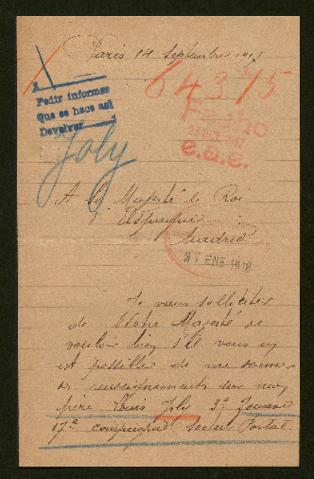 Paris 14 Septembre 1917
64375
Pedir informes
Que se hace así
Devolver
e.a.e.
Joly
A Sa Majesté le Roi
d'Espagne
Madrid
27 ENE 1918
Je viens solliciter
de Votre Majesté de
vouloir bien s'il vous
est possible de me donner
des renseignements sur mon
frère Louis Joly 3e Zouave
17e compagnie Secteur Postal